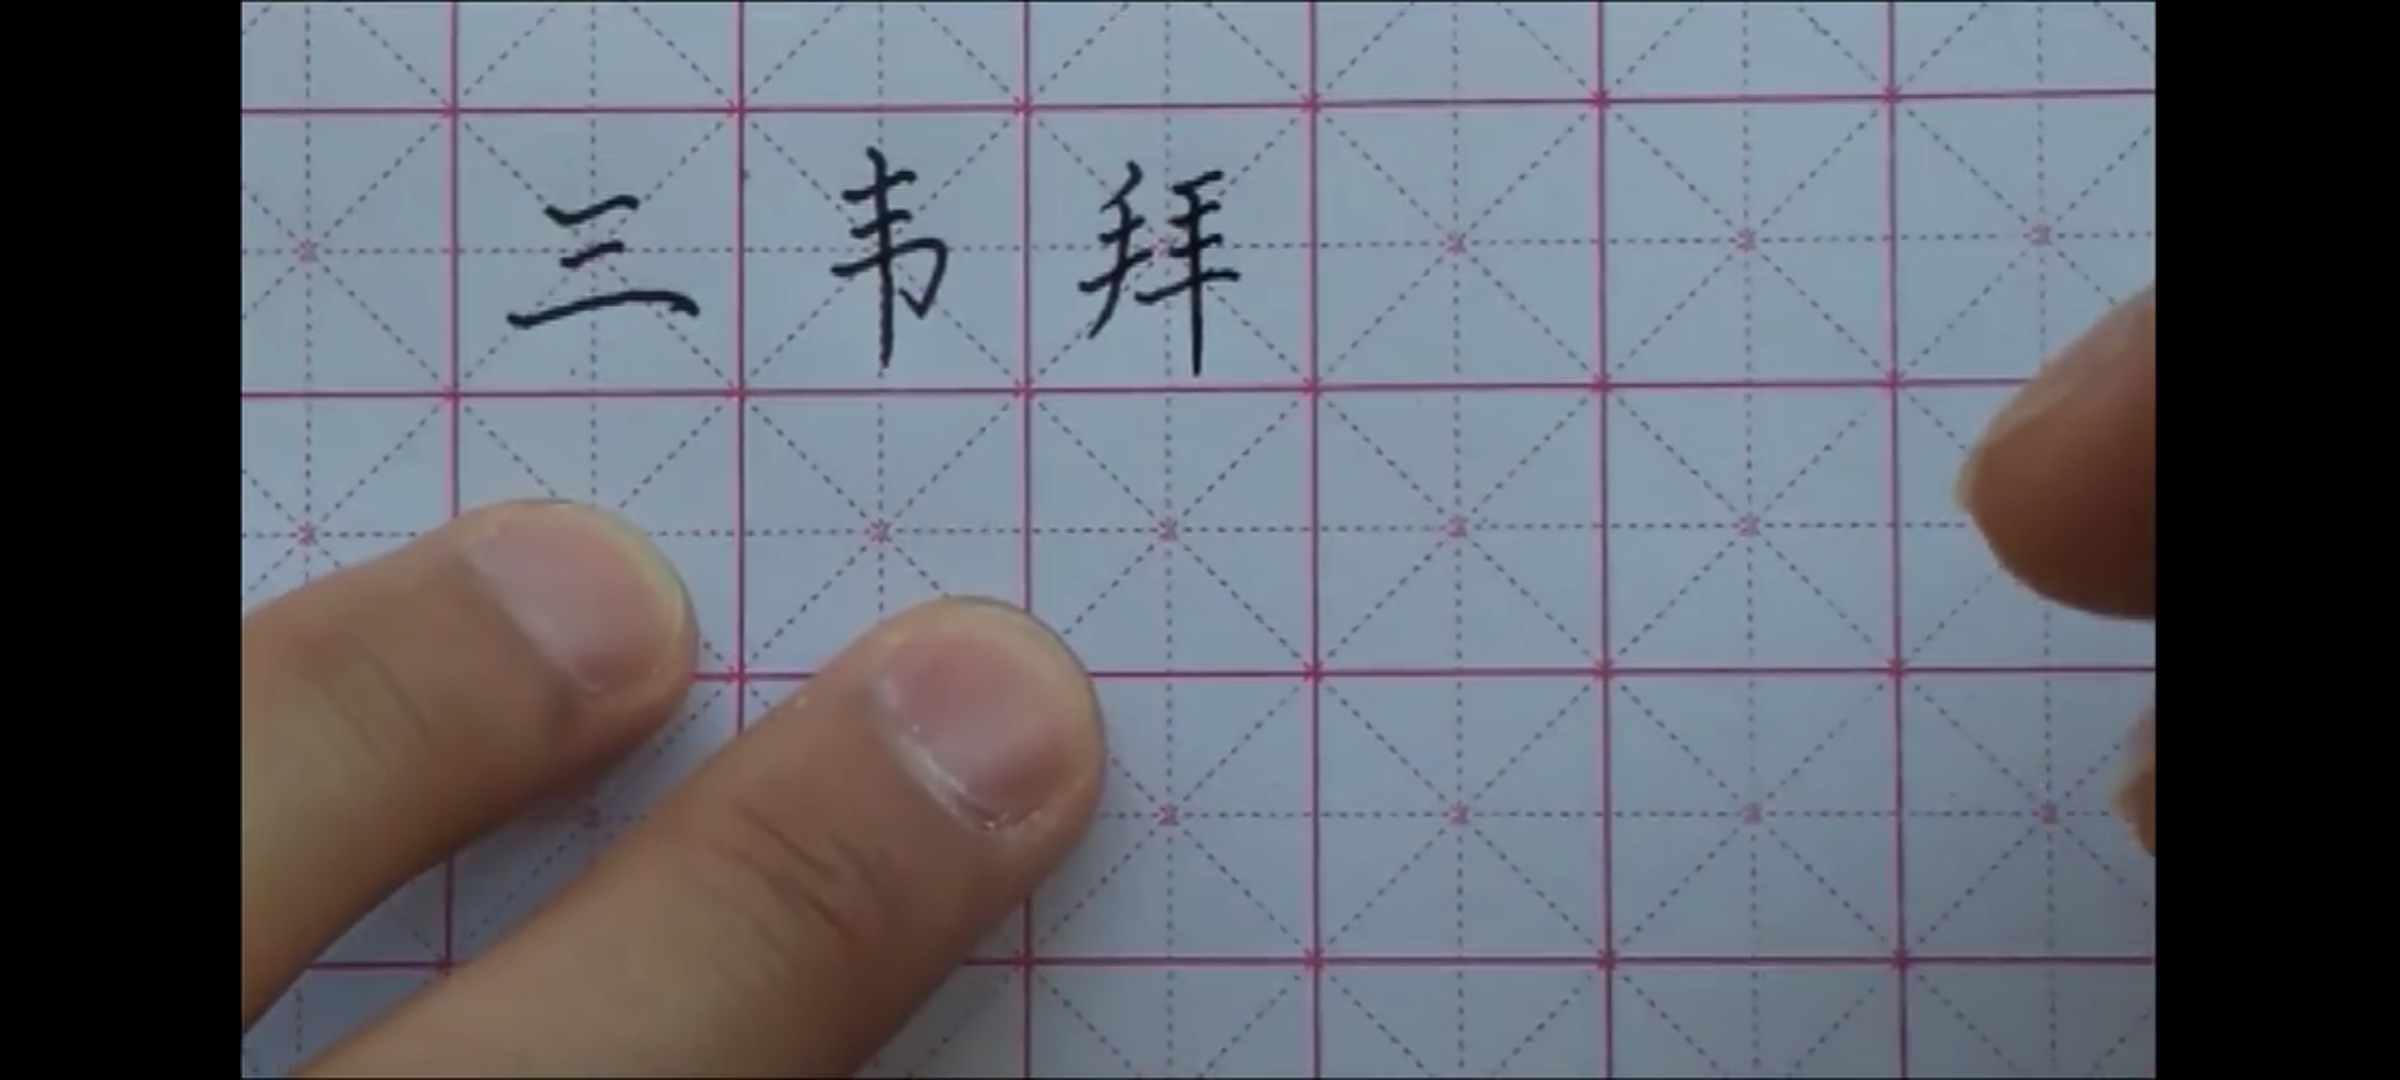 三韦拜